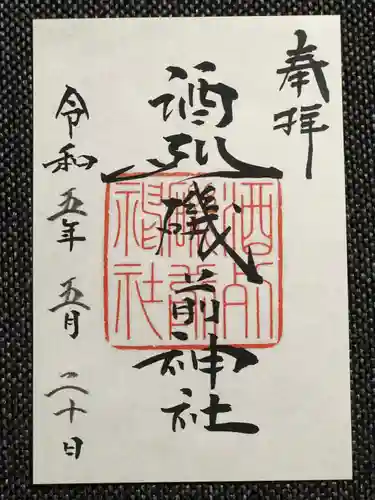 奉拝
酒列磯前神社
酒列磯前神社
令和五年五月二十日